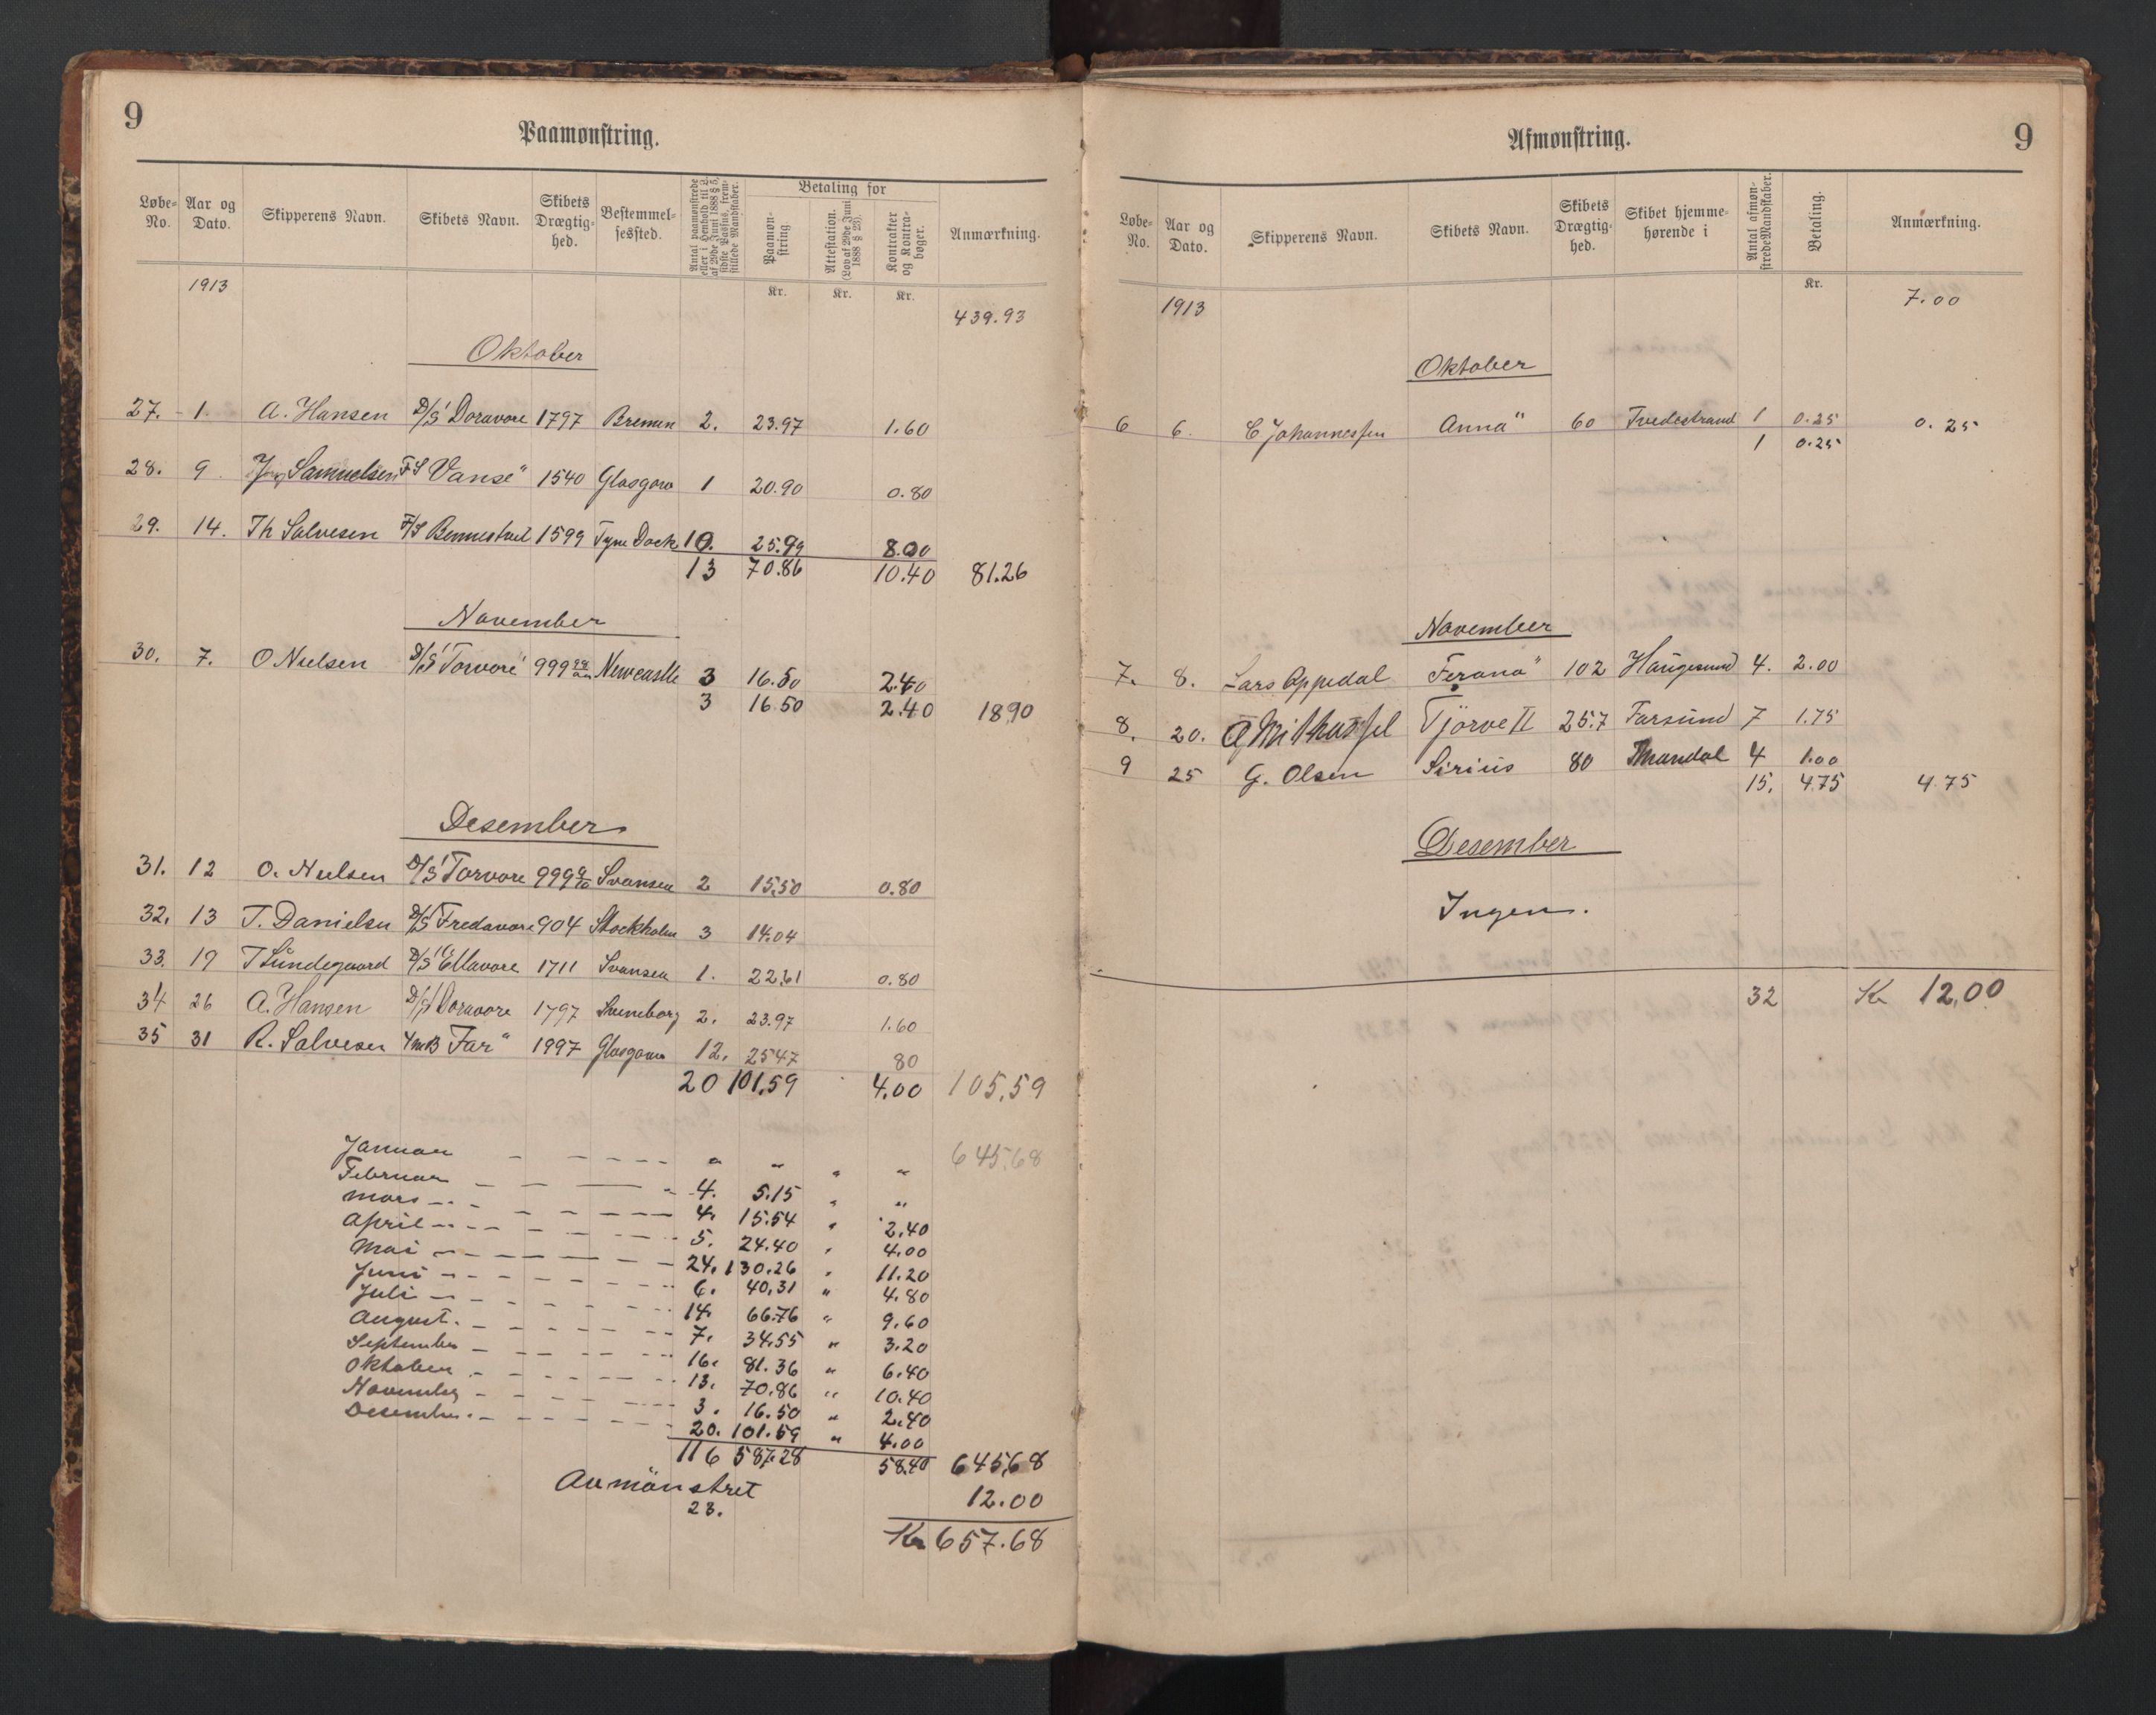 9
Paamønstring.
Løbe-No. Aar og Dato. Skipperens Navn. Skibets Navn. Skibets Drægtig-hed. Bestemmel-sessted. Antal paamønstrede eller i Henhold til L. af 29de Juni 1888 § 5, sidste Passus, frem-stillede Mandskaber. Betaling for Paamøn-string. Attestation. (Lov af 29de Juni 1888 § 23). Kontrakter og Kontra-bøger. Anmærkning.
1913 Kr. Kr. Kr.
439.93
Oktober
27. 1. A. Hansen D/S Doravore 1797 Bremen 2. 23.97 1.60
28. 9 Samuelsen "Vanse" 1540 Glasgow 1 20.90 0.80
29. 14. Th Salvesen 1599 Tyne Dock 10. 25.99 8.00
13 70.86 10.40 81.26
November
30. 7. O Nielsen D/S "Torvore" 999 Newcastle 3 16.50 2.40
3 16.50 2.40 18.90
Desember
31. 12 O. Nielsen D/S Torvore 999 Svansea 2 15.50 0.80
32. 13 T. Danielsen D/S Fredavore 904 Stockholm 3 14.04
33. 19 T Lundegaard D/S Ellavore 1711 Svansea 1. 22.61 0.80
34 26 A. Hansen D/S Doravore 1797 2. 23.97 1.60
35 31 R. Salvesen 4mB "Far" 1997 Glasgow 12. 25.47 80
20 101,59 4.00 105,59
Januar - - - - - " " " " 645,68
Februar - - - 4. 5.15 " "
Mars - - - 4. 15.54 " 2.40
April - - - 5. 24.40 " 4.00
Mai - - - 24. 130.26 " 11.20
Juni - - - 6. 40,31 " 4.80
Juli - - - 14. 66.76 " 9.60
August. - - - 7. 34.55 " 3.20
September - - - 16. 81.36 " 6.40
Oktober - - - 13. 70.86 " 10.40
November - - - 3. 16.50 " 2.40
Desember. - - - 20. 101.59 " 4.00
116 587.28 58.40 645,68
Avmönstret 12.00
28.
Kr 657.68
9
Afmønstring.
Løbe-No. Aar og Dato. Skipperens Navn. Skibets Navn. Skibets Drægtig-hed. Skibet hjemme-hørende i Antal afmøn-strede Mandskaber. Betaling. Anmærkning.
1913 Kr. 7.00
Oktober
6 6. C Johannessen Anna" 60 Tvedestrand 1 0.25 0.25
1 0.25
November
7. 8. Lars Oppedal Ferana" 102 Haugesund 4. 2.00
8. 20. Tjörve II 25.7 Farsund 7 1.75
9 25 G. Olsen Sirius 80 Mandal 4 1.00
15. 4.75 4.75
Desember
Ingen.
32 Kr 12,00